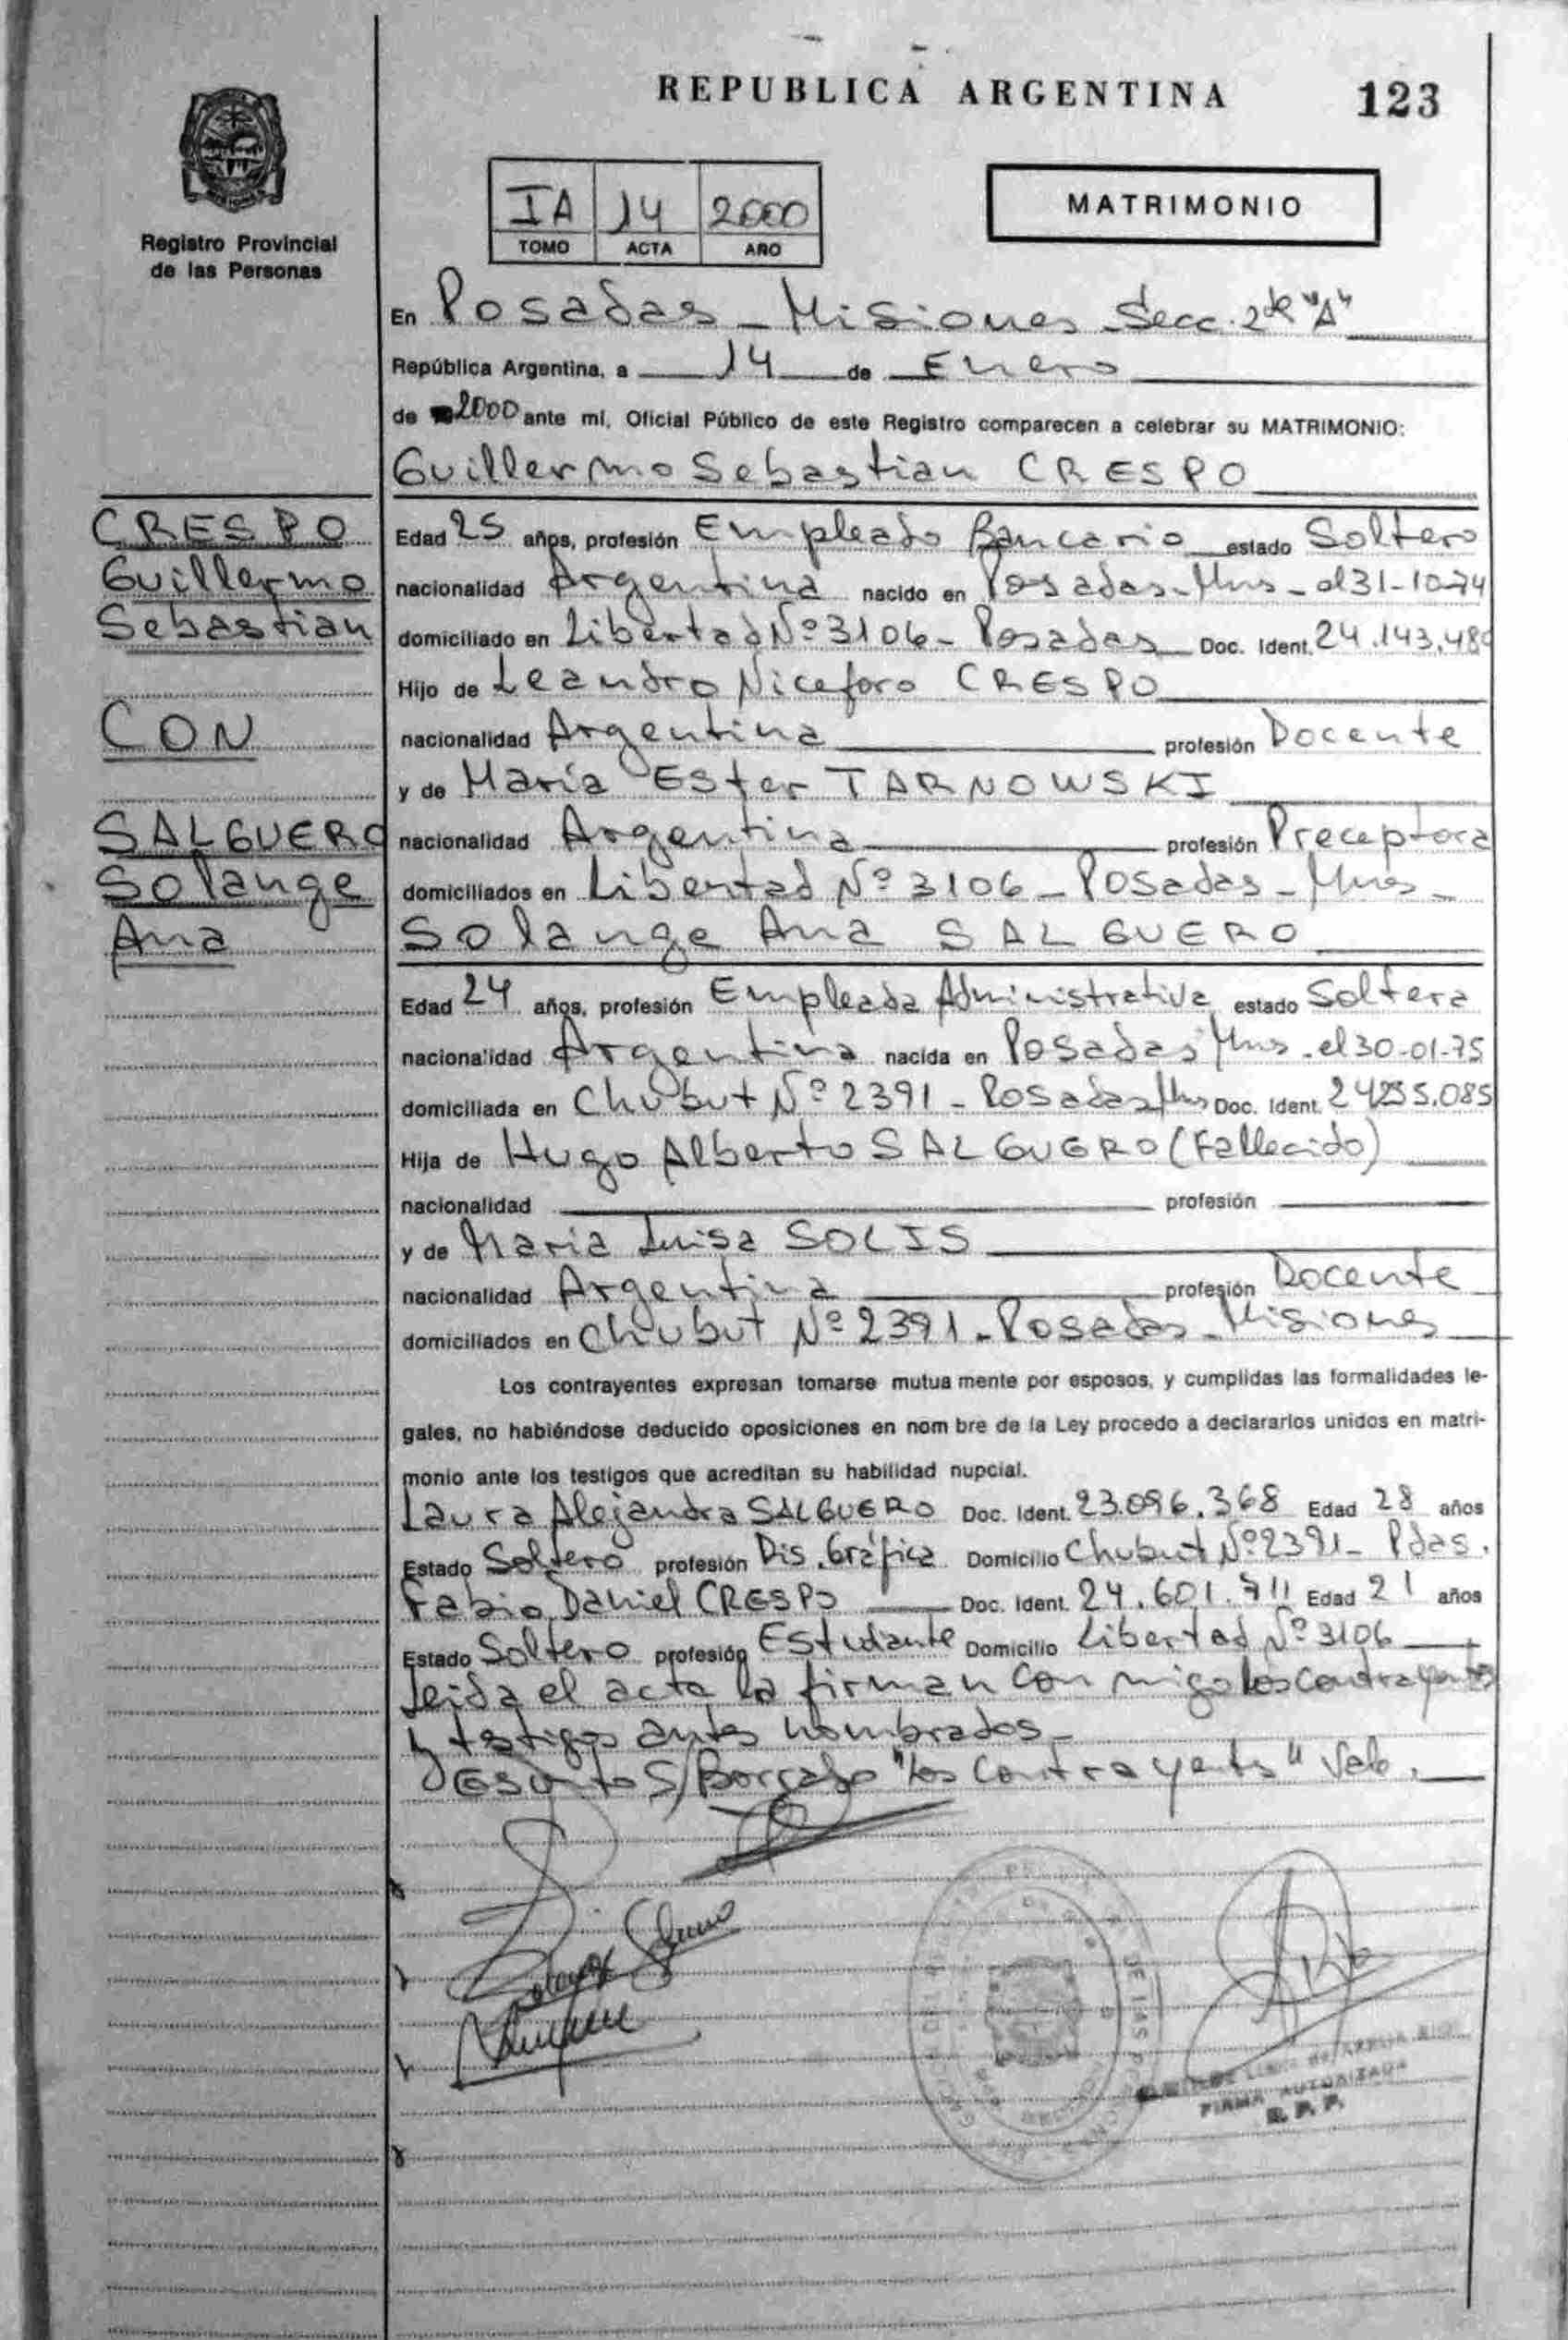 REPUBLICA ARGENTINA 123
Registro Provincial
de las Personas
IA 14 2000
TOMO ACTA AÑO
MATRIMONIO
En Posadas - Misiones Secc. 2da "A"
República Argentina, a 14 de Enero
de 2000 ante mí, Oficial Público de este Registro comparecen a celebrar su MATRIMONIO:
Guillermo Sebastian CRESPO
CRESPO
Guillermo
Sebastian
CON
SALGUERO
Solange
Ana
Edad 25 años, profesión Empleado Bancario estado Soltero
nacionalidad Argentina nacido en Posadas - Mnes - el 31-10-74
domiciliado en Libertad Nº 3106 - Posadas Doc. Ident. 24.143.48
Hijo de Leandro Niceforo CRESPO
nacionalidad Argentina profesión Docente
y de María Ester TARNOWSKI
nacionalidad Argentina profesión Preceptora
domiciliados en Libertad Nº 3106 - Posadas - Mnes -
Solange Ana SALGUERO
Edad 24 años, profesión Empleada Administrativa estado Soltera
nacionalidad Argentina nacida en Posadas Mnes. el 30-01-75
domiciliada en Chubut Nº 2391 - Posadas Mns Doc. Ident. 24255.085
Hija de Hugo Alberto SALGUERO (Fallecido)
nacionalidad profesión
y de Maria Luisa SOLIS
nacionalidad Argentina profesión Docente
domiciliados en Chubut Nº 2391 - Posadas - Misiones
Los contrayentes expresan tomarse mutua mente por esposos, y cumplidas las formalidades le-
gales, no habiéndose deducido oposiciones en nom bre de la Ley procedo a declararlos unidos en matri-
monio ante los testigos que acreditan su habilidad nupcial.
Laura Alejandra SALGUERO Doc. Ident. 23.096.368 Edad 28 años
Estado Soltero profesión Dis. Gráfica Domicilio Chubut Nº 2391 - Pdas.
Fabio Daniel CRESPO Doc. Ident. 24.601.711 Edad 21 años
Estado Soltero profesión Estudiante Domicilio Libertad Nº 3106
Leida el acta la firman con migo los contrayentes
y testigos antes nombrados -
Escrito S/Borrado "los contrayents" Vale.
FIRMA AUTORIZADA
R. P. P.